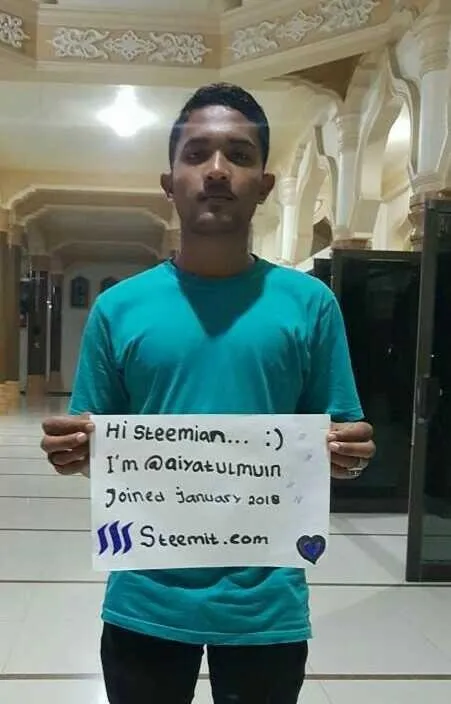 Hi Steemian... :)
I'm @aiyatulmuin
Joined january 2018
Steemit.com